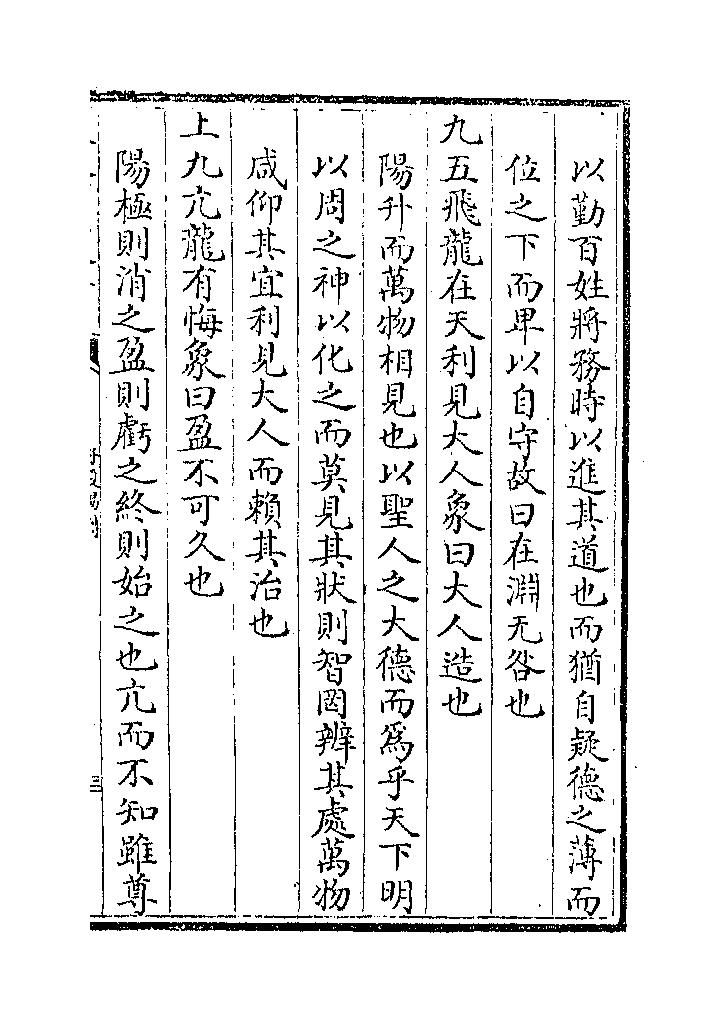 以勤百姓將務時以進其道也而猶自疑德之薄而
位之下而卑以自守故曰在淵无咎也
九五飛龍在天利見大人象曰大人造也
陽升而萬物相見也以聖人之大德而爲乎天下明
以周之神以化之而莫見其狀則智罔辨其處萬物
咸仰其宜利見大人而賴其治也
上九亢龍有悔象曰盈不可久也
陽極則消之盈則虧之終則始之也亢而不知雖尊
三